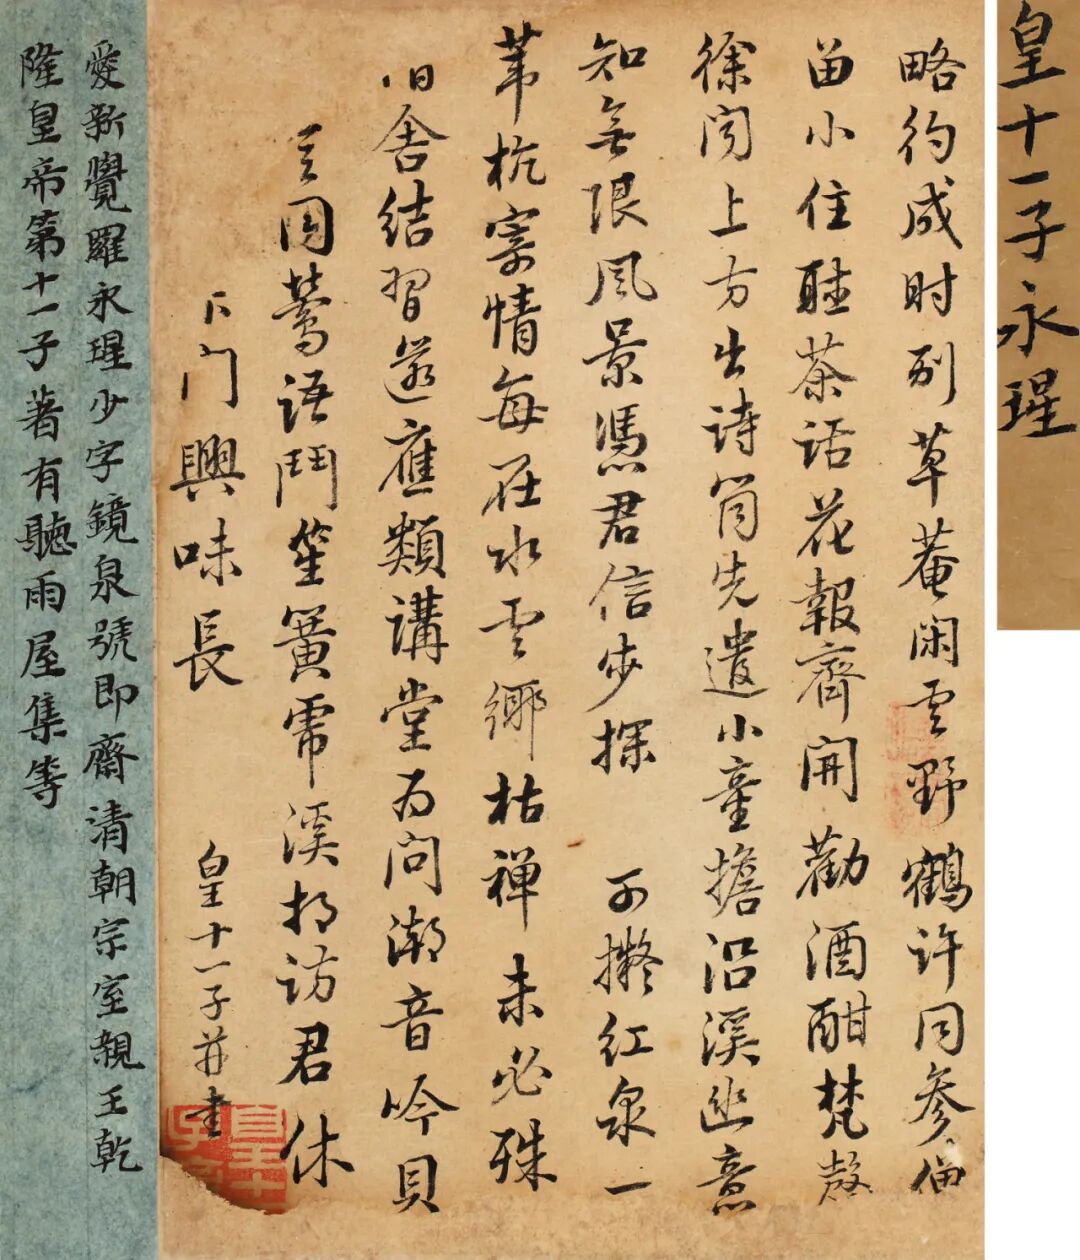 皇十一子永瑆
略彴成时别草菴闲云野鶴许同参偏
留小住聴茶话花報齊開勸酒酣梵磬
徐闻上方出诗筒先遣小童擔沿溪幽意
知無限風景憑君信步探 可擬红泉一
苇杭寄情每在水雲鄉枯禅未必殊
旧舍结習還應類講堂为问潮音吟貝
囯鶯語鬥笙簧需溪相访君休
門興味長
皇十一子并書
愛新覺羅永瑆少字鏡泉號即齋清朝宗室親王乾
隆皇帝第十一子著有聽雨屋集等